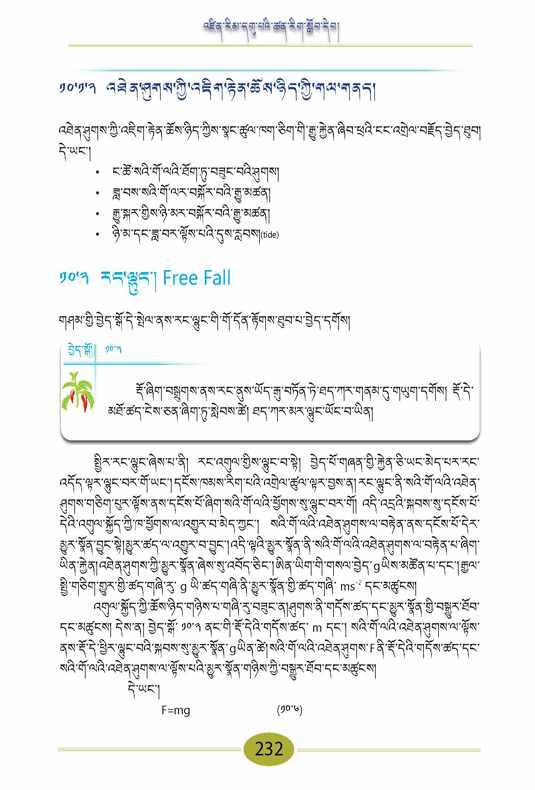 འཛིན་རིམ་དགུ་པའི་ཚན་རིག་སློབ་དེབ།
༡༠་༡་༢ འཐེན་ཤུགས་ཀྱི་འཇིག་རྟེན་ཆོས་ཉིད་ཀྱི་གལ་གནད།
འཐེན་ཤུགས་ཀྱི་འཇིག་རྟེན་ཆོས་ཉིད་ཀྱིས་སྣང་ཚུལ་ཁག་ཅིག་གི་རྒྱུ་རྐྱེན་ཞིབ་ཕྲའི་ངང་འགྲེལ་བརྗོད་བྱེད་ཐུབ།
དེ་ཡང་།
• ང་ཚོ་སའི་གོ་ལའི་ཐོག་ཏུ་བཟུང་བའི་ཤུགས།
• ཟླ་བས་སའི་གོ་ལར་བསྐོར་བའི་རྒྱུ་མཚན།
• རྒྱུ་སྐར་གྱིས་ཉི་མར་བསྐོར་བའི་རྒྱུ་མཚན།
• ཉི་མ་དང་ཟླ་བར་ལྟོས་པའི་དུས་རླབས།(tide)
༡༠་༢ རང་ལྷུང་། Free Fall
གཤམ་གྱི་བྱེད་སྒོ་དེ་སྤེལ་ནས་རང་ལྷུང་གི་གོ་དོན་རྟོགས་ཐུབ་པ་བྱེད་དགོས།
བྱེད་སྒོ། ༡༠་༢
རྡོ་ཞིག་བསྒྲུགས་ནས་རང་ནུས་ཡོད་རྒུ་བཏོན་ཏེ་ཐད་ཀར་གནམ་དུ་གཡུག་དགོས། རྡོ་དེ་
མཐོ་ཚད་ངེས་ཅན་ཞིག་ཏུ་སླེབས་ཚེ། ཐད་ཀར་མར་ལྷུང་ཡོང་བ་ཡིན།
སྤྱིར་རང་ལྷུང་ཞེས་པ་ནི། རང་འགུལ་གྱིས་ལྷུང་བ་སྟེ། བྱེད་པོ་གཞན་གྱི་རྐྱེན་ཅི་ཡང་མེད་པར་རང་
འདོད་ལྟར་ལྷུང་བར་གོ་ཡང་། དངོས་ཁམས་རིག་པའི་འགྲེལ་ཚུལ་ལྟར་བྱས་ན། རང་ལྷུང་ནི་སའི་གོ་ལའི་འཐེན་
ཤུགས་གཅིག་པུར་ལྟོས་ནས་དངོས་པོ་ཞིག་སའི་གོ་ལའི་ཕྱོགས་སུ་ལྷུང་བར་གོ། འདི་འདྲའི་སྐབས་སུ་དངོས་པོ་
དེའི་འགུལ་སྐྱོད་ཀྱི་ཁ་ཕྱོགས་ལ་འགྱུར་བ་མེད་ཀྱང་། སའི་གོ་ལའི་འཐེན་ཤུགས་ལ་བརྟེན་ནས་དངོས་པོ་དེར་
མྱུར་སྣོན་བྱུང་སྟེ། མྱུར་ཚད་ལ་འགྱུར་བ་བྱུང་། འདི་ལྟའི་མྱུར་སྣོན་ནི་སའི་གོ་ལའི་འཐེན་ཤུགས་ལ་བརྟེན་པ་ཞིག་
ཡིན་རྐྱེན། འཐེན་ཤུགས་ཀྱི་མྱུར་སྣོན་ཞེས་སུ་འབོད་ཅིང་། ཨིན་ཡིག་གི་གསལ་བྱེད་ g ཡིས་མཚོན་པ་དང་། རྒྱལ་
སྤྱི་གཅིག་གྱུར་གྱི་ཚད་གཞི་རུ་ g ཡི་ཚད་གཞི་ནི་མྱུར་སྣོན་གྱི་ཚད་གཞི་ ms⁻² དང་མཚུངས།
འགུལ་སྐྱོད་ཀྱི་ཆོས་ཉིད་གཉིས་པ་གཞི་རུ་བཟུང་ན། ཤུགས་ནི་གདོས་ཚད་དང་མྱུར་སྣོན་གྱི་བསྒྱུར་ཐོབ་
དང་མཚུངས། དེས་ན། བྱེད་སྒོ་ ༡༠་༢ ནང་གི་རྡོ་དེའི་གདོས་ཚད་ m དང་། སའི་གོ་ལའི་འཐེན་ཤུགས་ལ་ལྟོས་
ནས་རྡོ་དེ་ཕྱིར་ལྷུང་བའི་སྐབས་སུ་མྱུར་སྣོན་ g ཡིན་ཚེ། སའི་གོ་ལའི་འཐེན་ཤུགས་ F ནི་རྡོ་དེའི་གདོས་ཚད་དང་
སའི་གོ་ལའི་འཐེན་ཤུགས་ལ་ལྟོས་པའི་མྱུར་སྣོན་གཉིས་ཀྱི་བསྒྱུར་ཐོབ་དང་མཚུངས།
དེ་ཡང་།
F=mg (༡༠་༦)
232